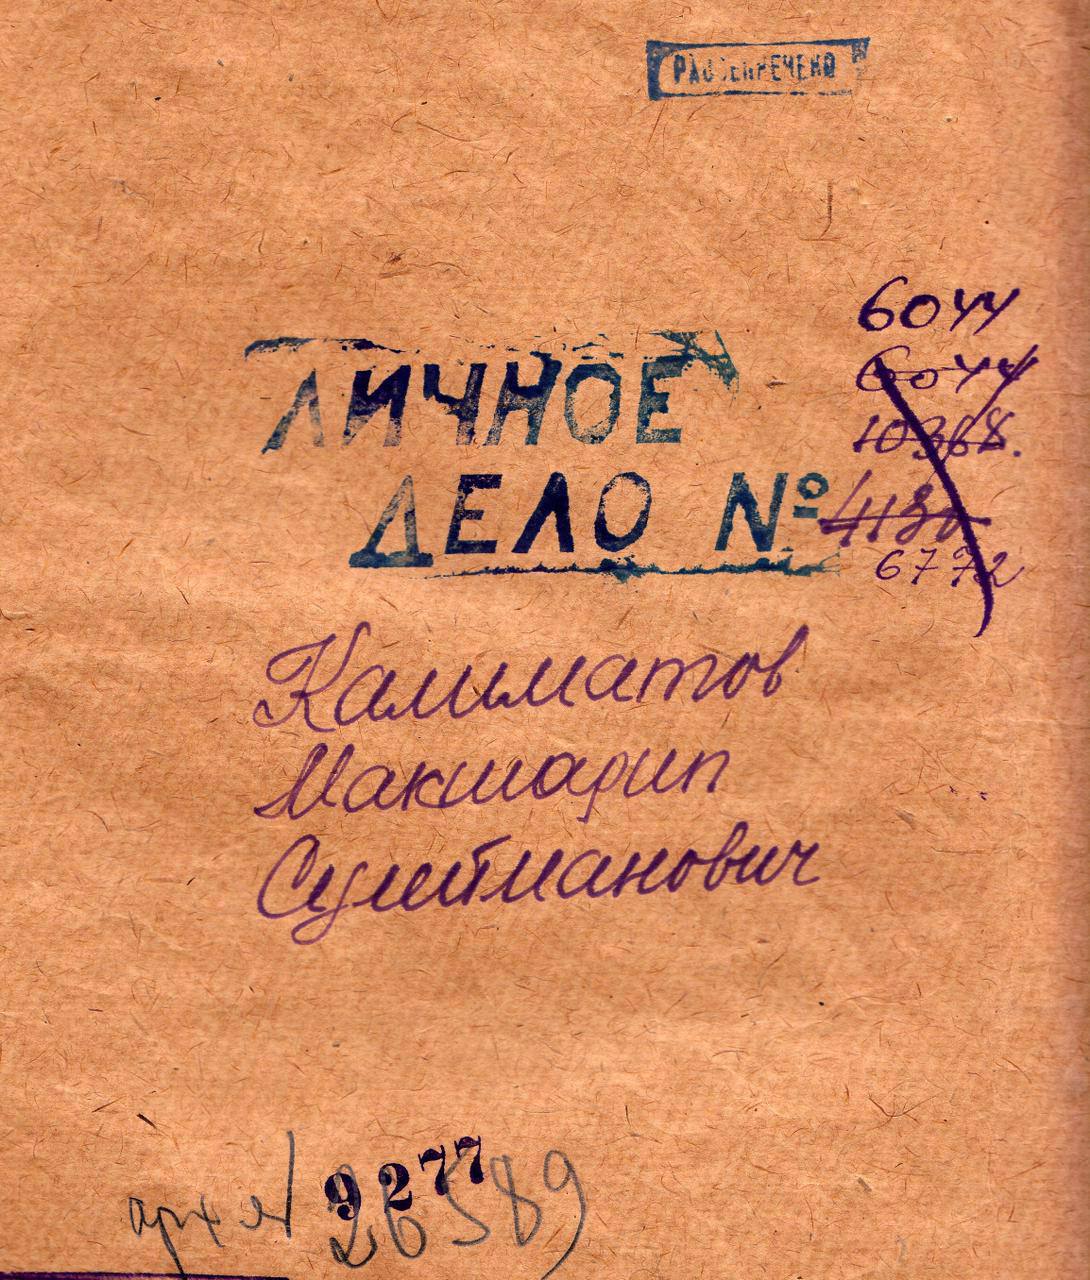 РАССЕКРЕЧЕНО
6044
6044
10368.
ЛИЧНОЕ
ДЕЛО № 4180
6772
Калиматов
Макшарип
Сулейманович
9277
арх № 26589